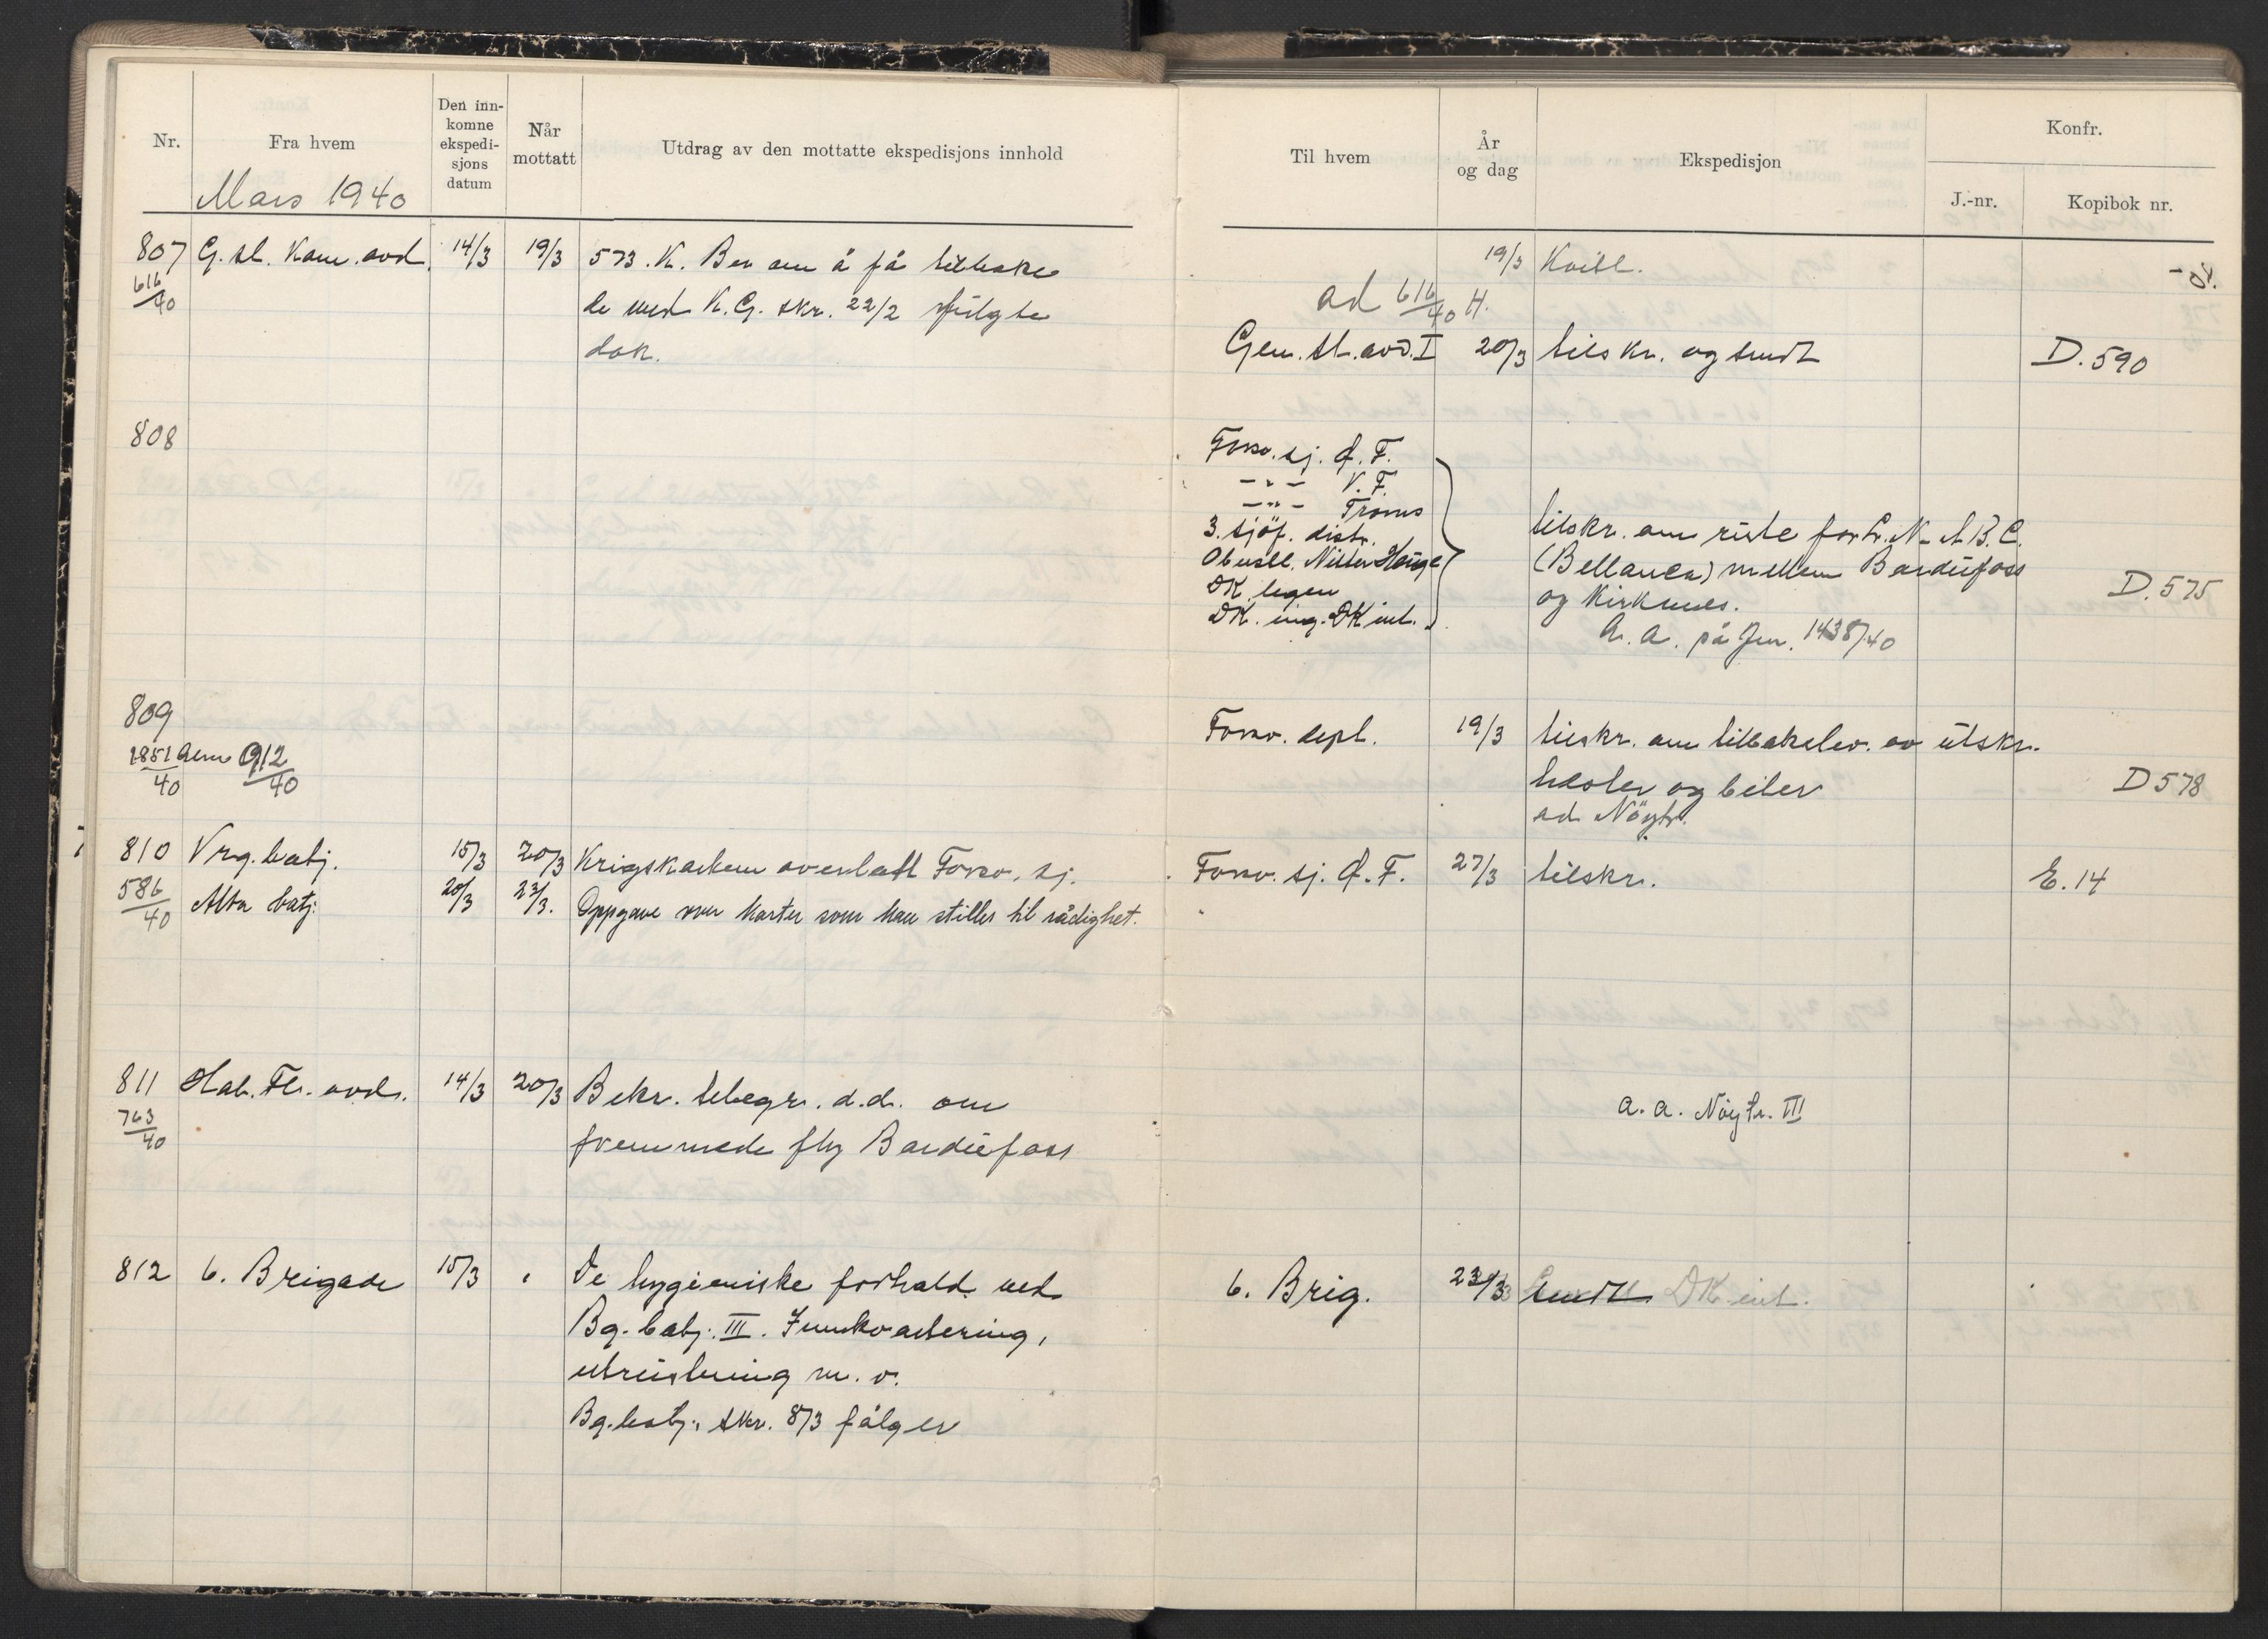 Nr.
Fra hvem
Den inn-
komne
ekspedi-
sjons
datum
Når
mottatt
Utdrag av den mottatte ekspedisjons innhold
Mars 1940
807 G. st. Kom. avd. 14/3 19/3 573. K. Ber om å få tilbake
616/40 de med K. G. skr. 22/2 fulgte
dok.
808
809
1851/40 Alm 912/40
810 Vrg. batj. 15/3 20/3 Krigskartene overlatt Forsv. sj.
586/40 Alta batj. 20/3 23/3. Oppgave over karter som kan stilles til rådighet.
811 Hal. Fl. avd. 14/3 20/3 Bekr. telegr. d.d. om
763/40 fremmede fly Bardufoss
812 6. Brigade 15/3 " De hygieniske forhold ved
Bg. batj. III. Innkvartering,
utrustning m. v.
Bg. batj. skr. 8/3 følger
Til hvem
År
og dag
Ekspedisjon
Konfr.
J.-nr.
Kopibok nr.
19/3 Kvitt.
ad 616/40 H.
Gen. st. avd. I 20/3 tilskr. og sendt D. 590
Forsv. sj. Ø. F.
-"- V. F.
-"- Troms
3. sjöf. distr.
DK legen
DK. ing. DK int.
tilskr. om rute for L. N-ABC.
(Bellanca) mellem Bardufoss
og Kirkenes. D. 575
A. A. på Jnr. 1438/40
Forsv. dept. 19/3 tilskr. om tilbakelev. av utskr.
hester og biler D 578
ad Nöytr.
Forsv. sj. Ø. F. 27/3 tilskr. E. 14
a. a. Nöytr. III
6. Brig. 23/3 Sendt DK int.